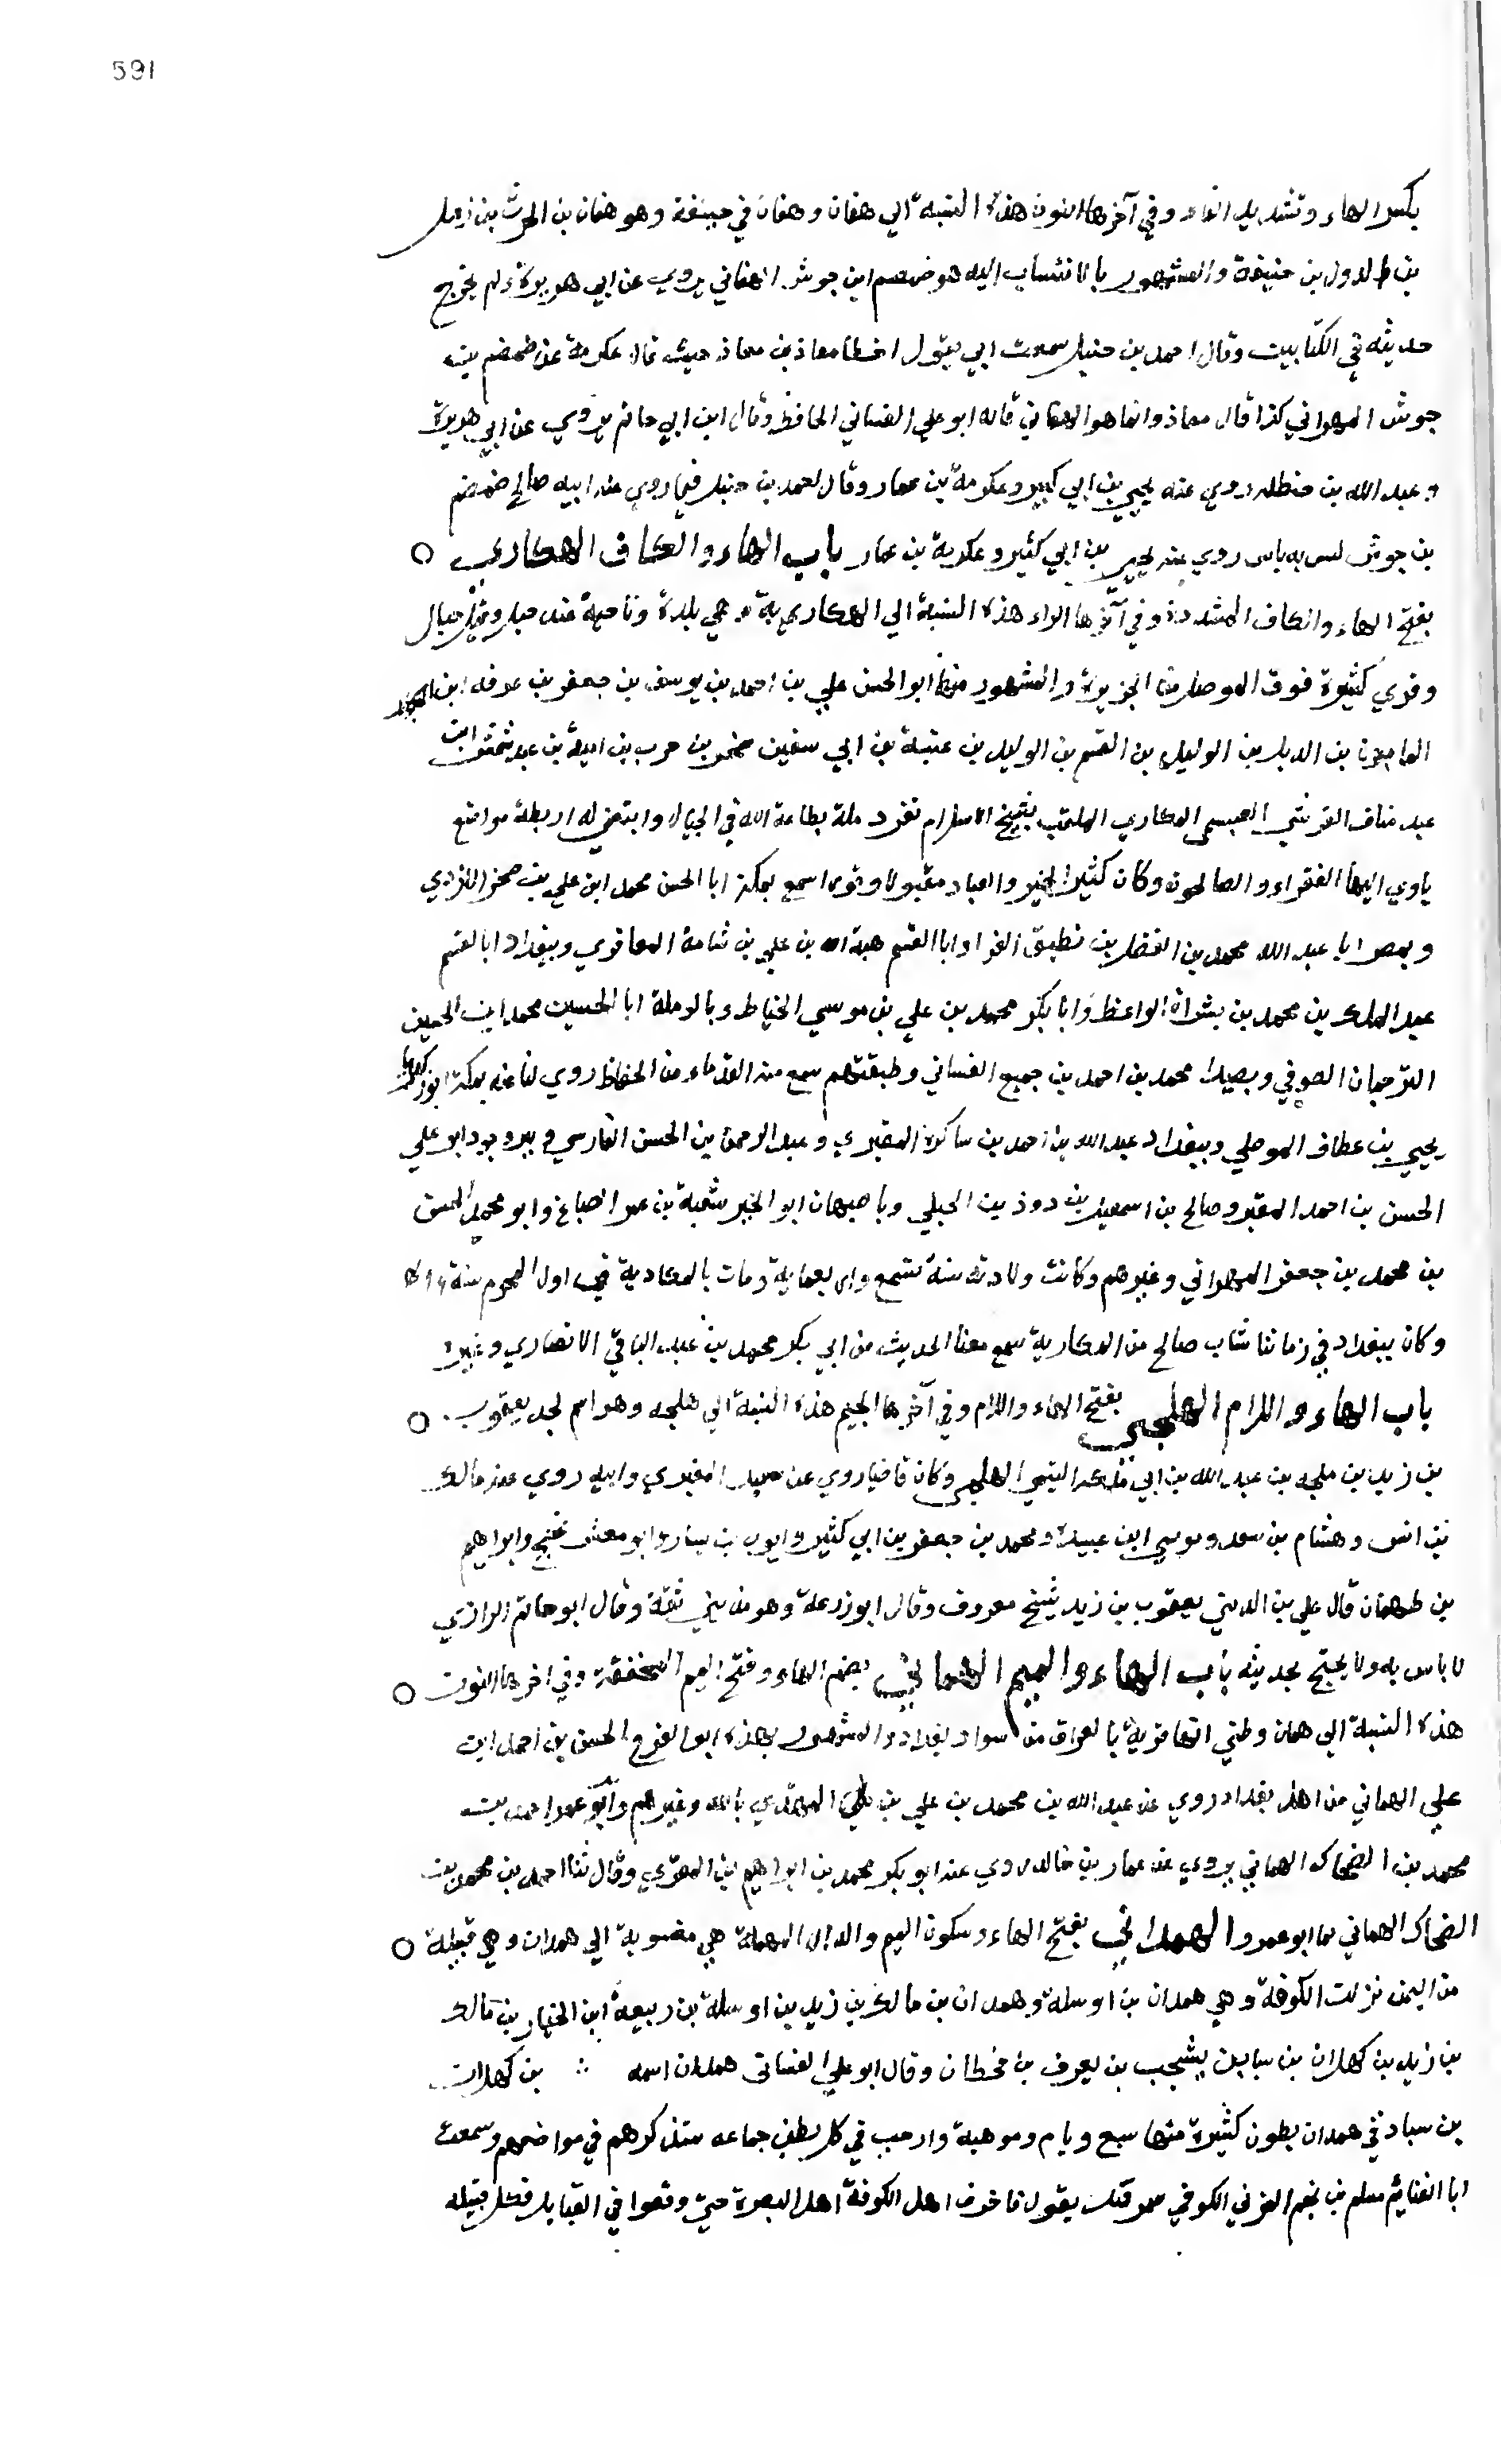 591
بكسر الهاء وتشديد الفاء وفي آخرها النون هذه النسبة الي هفان وهفان في حنيفة وهو هفان بن الحرث بن ذهل
بن الدول بن حنيفة والمشهور بالانتساب اليه هو ضمضم ابن جوش الهفاني يروي عن ابي هريرة ولم يخرج
حديثه في الكتابين وقال احمد بن حنبل سمعت ابي يقول اخطا معاذ بن معاذ حيث قال عكرمة عن ضمضم بن
جوش الهمداني كذا قال معاذ وانما هو الهفاني قاله ابو علي الغساني الحافظ وقال ابن ابي حاتم يروي عن ابي هريرة
وعبد الله بن حنظله روي عنه يحيي بن ابي كثير وعكرمة بن عمار وقال احمد بن حنبل فيما روي عنه ابيه صالح ضمضم
بن جوش ليس به باس روي عنه يحيي بن ابي كثير وعكرمة بن عمار باب الهاء والكاف الهكاري
بفتح الهاء والكاف المشددة وفي آخرها الراء هذه النسبة الي الهكارية وهي بلدة وناحية عند جبل وقيل جبال
وقري كثيرة فوق الموصل من الجزيرة والمشهور منها ابو الحسن علي بن احمد بن يوسف بن جعفر بن عرفه ابن
بن الوليد بن القسم بن الوليد بن عتبة بن ابي سفين صخر بن حرب بن امية بن عبد شمس ابن
عبد مناف القرشي العبسمي الهكاري الملقب بشيخ الاسلام تفرد بطاعة الله في الجبال وابتني له اربطة مواضع
ياوي اليها الفقراء والصالحون وكان كثير الخير والعباد مقبولا وقورا سمع بمكة ابا الحسن محمد ابن علي بن صخر الازدي
وبمصر ابا عبد الله محمد بن الفضل بن نظيف الفرا وابا القسم هبة الله بن علي بن المعافري وببغداد ابا القسم
عبد الملك بن محمد بن بشران الواعظ وابا بكر محمد بن علي بن موسي الخياط وبالرملة ابا الحسين محمد ابن الحسين
الترجمان الصوفي وبصيدا محمد بن احمد بن جميع الغساني وطبقتهم سمع منه القدماء من الحفاظ روي لنا عنه بمكة ابو زكريا
يحيي بن عطاف الموصلي وببغداد عبد الله بن احمد بن المقبري وعبد الرحمن بن الحسن الفارسي وببروجرد ابو علي
الحسن بن احمد المقبر وصالح بن اسمعيل بن الجيلي وباصبهان ابو الخير شعبة بن عمر الصباغ وابو محمد الحسن
بن محمد بن جعفر المهراني وغيرهم وكانت ولادته سنة تسع واربعماية ومات بالهكارية في اول المحرم سنة
وكان ببغداد في زماننا شاب صالح من الهكارية سمع معنا الحديث من ابي بكر محمد بن عبد الباقي الانصاري وغيره
باب الهاء واللام الهلجي بفتح الهاء واللام وفي آخرها الجيم هذه النسبة الي هلجه وهو اسم لجد يعقوب
بن زيد بن هلجه بن عبد الله بن ابي مليكة التيمي الهلجي وكان قاضيا روي عن سعيد المقبري وابيه روي عنه مالك
بن انس وهشام بن سعد وموسي ابن عبيدة ومحمد بن جعفر بن ابي كثير وايوب بن سيار وابو معشر نجيح وابراهيم
بن طهمان قال علي بن المديني يعقوب بن زيد شيخ معروف وقال ابو زرعة وهو مديني ثقة وقال ابو حاتم الرازي
لا باس به ولا يحتج بحديثه باب الهاء والميم الهماني بضم الهاء وفتح الميم المخففة وفي اخرها النون
هذه النسبة الي همان وظني انها قرية بالعراق من سواد بغداد والمشهور بهذه ابو الفرج الحسن بن احمد ابن
علي الهماني من اهل بغداد روي عن عبد الله بن محمد بن علي بن المهتدي بالله وغيرهم وابو عمر احمد بن
محمد بن الضحاك الهماني يروي عن عمار بن خالد روي عنه ابو بكر محمد بن ابراهيم بن المقري وقال ثنا احمد بن محمد بن
الضحاك الهماني ابو عمرو الهمداني بفتح الهاء وسكون الميم والدال المهملة هي منسوبة الي همدان وهي قبيلة
من اليمن نزلت الكوفة وهي همدان بن اوسلة وهمدان بن مالك بن زيد بن اوسلة بن ربيعة ابن الخيار بن مالك
بن زيد بن كهلان بن سبا بن يشجب بن يعرب بن قحطان وقال ابو علي الغساني همدان اسمه ∴ بن كهلان
بن سبا وفي همدان بطون كثيرة منها سبع ويام وموهبة وارحب في كل بطن جماعه ستذكرهم في مواضعهم وسمعت
ابا الغنايم مسلم بن نجم المزني الكوفي بسمرقند يقول فاخرت اهل الكوفة اهل البصرة حتي وقعوا في القبايل فكل قبيله